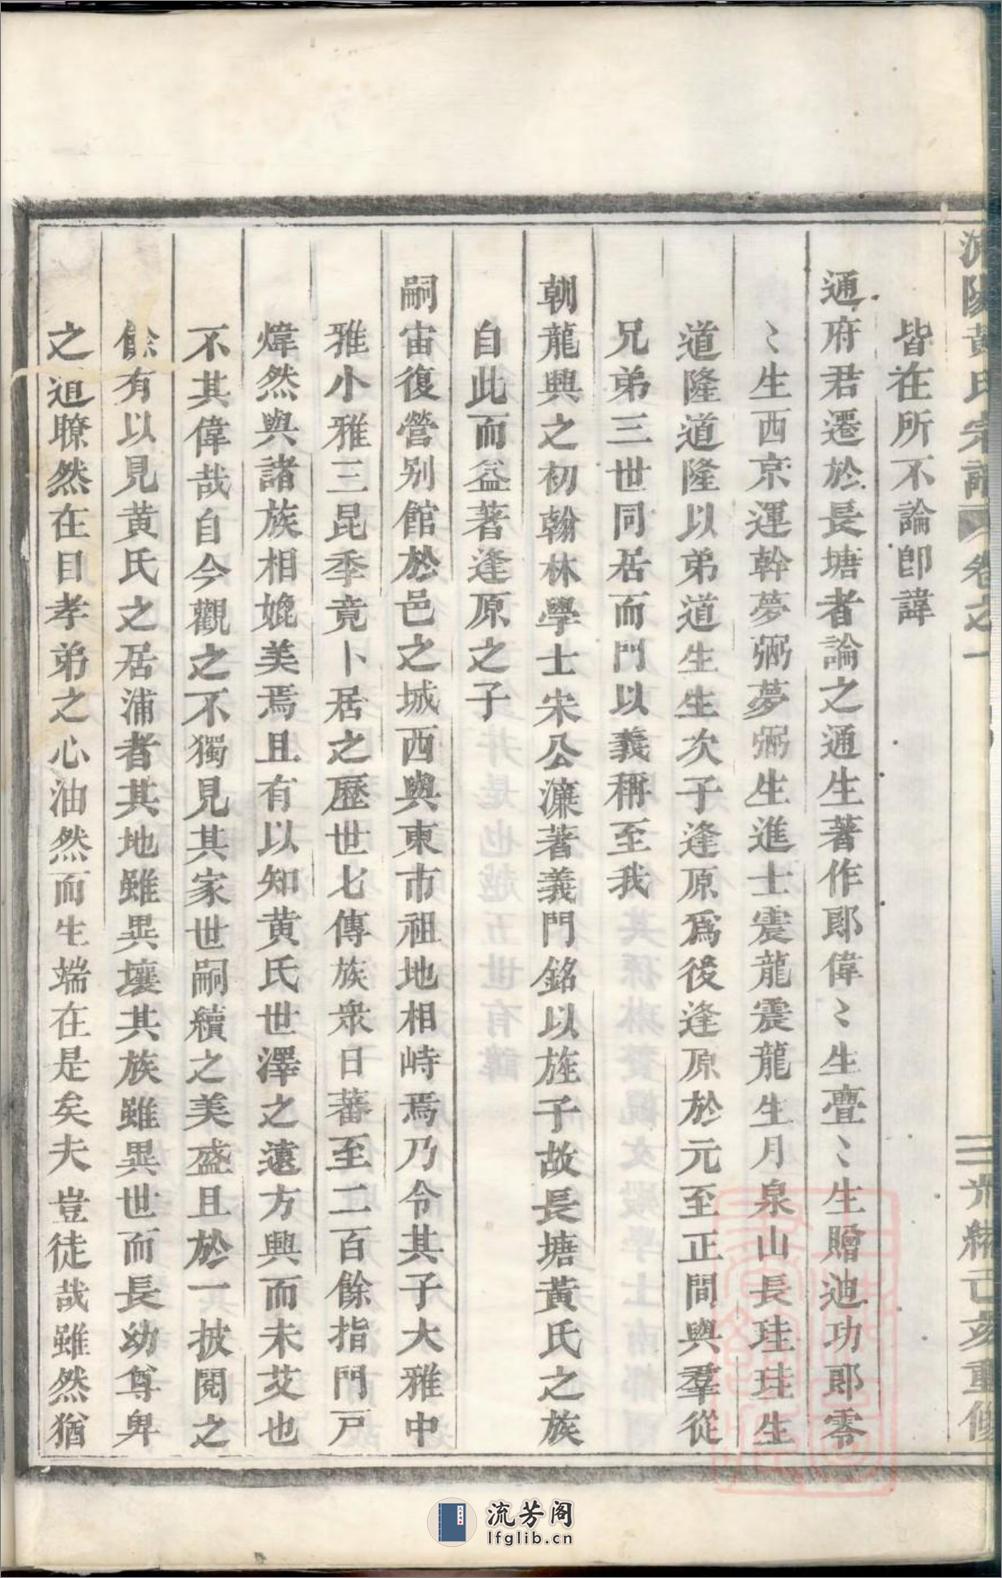 浦陽黃氏宗譜　卷之一　三　光緒己亥重修
皆在所不論卽諱
通府君遷於長塘者論之通生著作郎偉〻生亹〻生贈迪功郎零
〻生西京運幹夢弼夢弼生進士震龍震龍生月泉山長珪珪生
道隆道隆以弟道生生次子逢原爲後逢原於元至正間與羣從
兄弟三世同居而門以義稱至我
朝龍興之初翰林學士宋公濂著義門銘以旌子故長塘黃氏之族
自此而益著逢原之子
嗣宙復營别館於邑之城西與東市祖地相峙焉乃令其子大雅中
雅小雅三昆季竟卜居之歷世七傳族衆日蕃至二百餘指門戸
煒然與諸族相媲美焉且有以知黃氏世澤之遠方興而未艾也
不其偉哉自今觀之不獨見其家世嗣續之美盛且於一披閱之
餘有以見黃氏之居浦者其地雖異壤其族雖異世而長幼尊卑
之道暸然在目孝弟之心油然而生端在是矣夫豈徒哉雖然猶
流芳阁
lfglib.cn